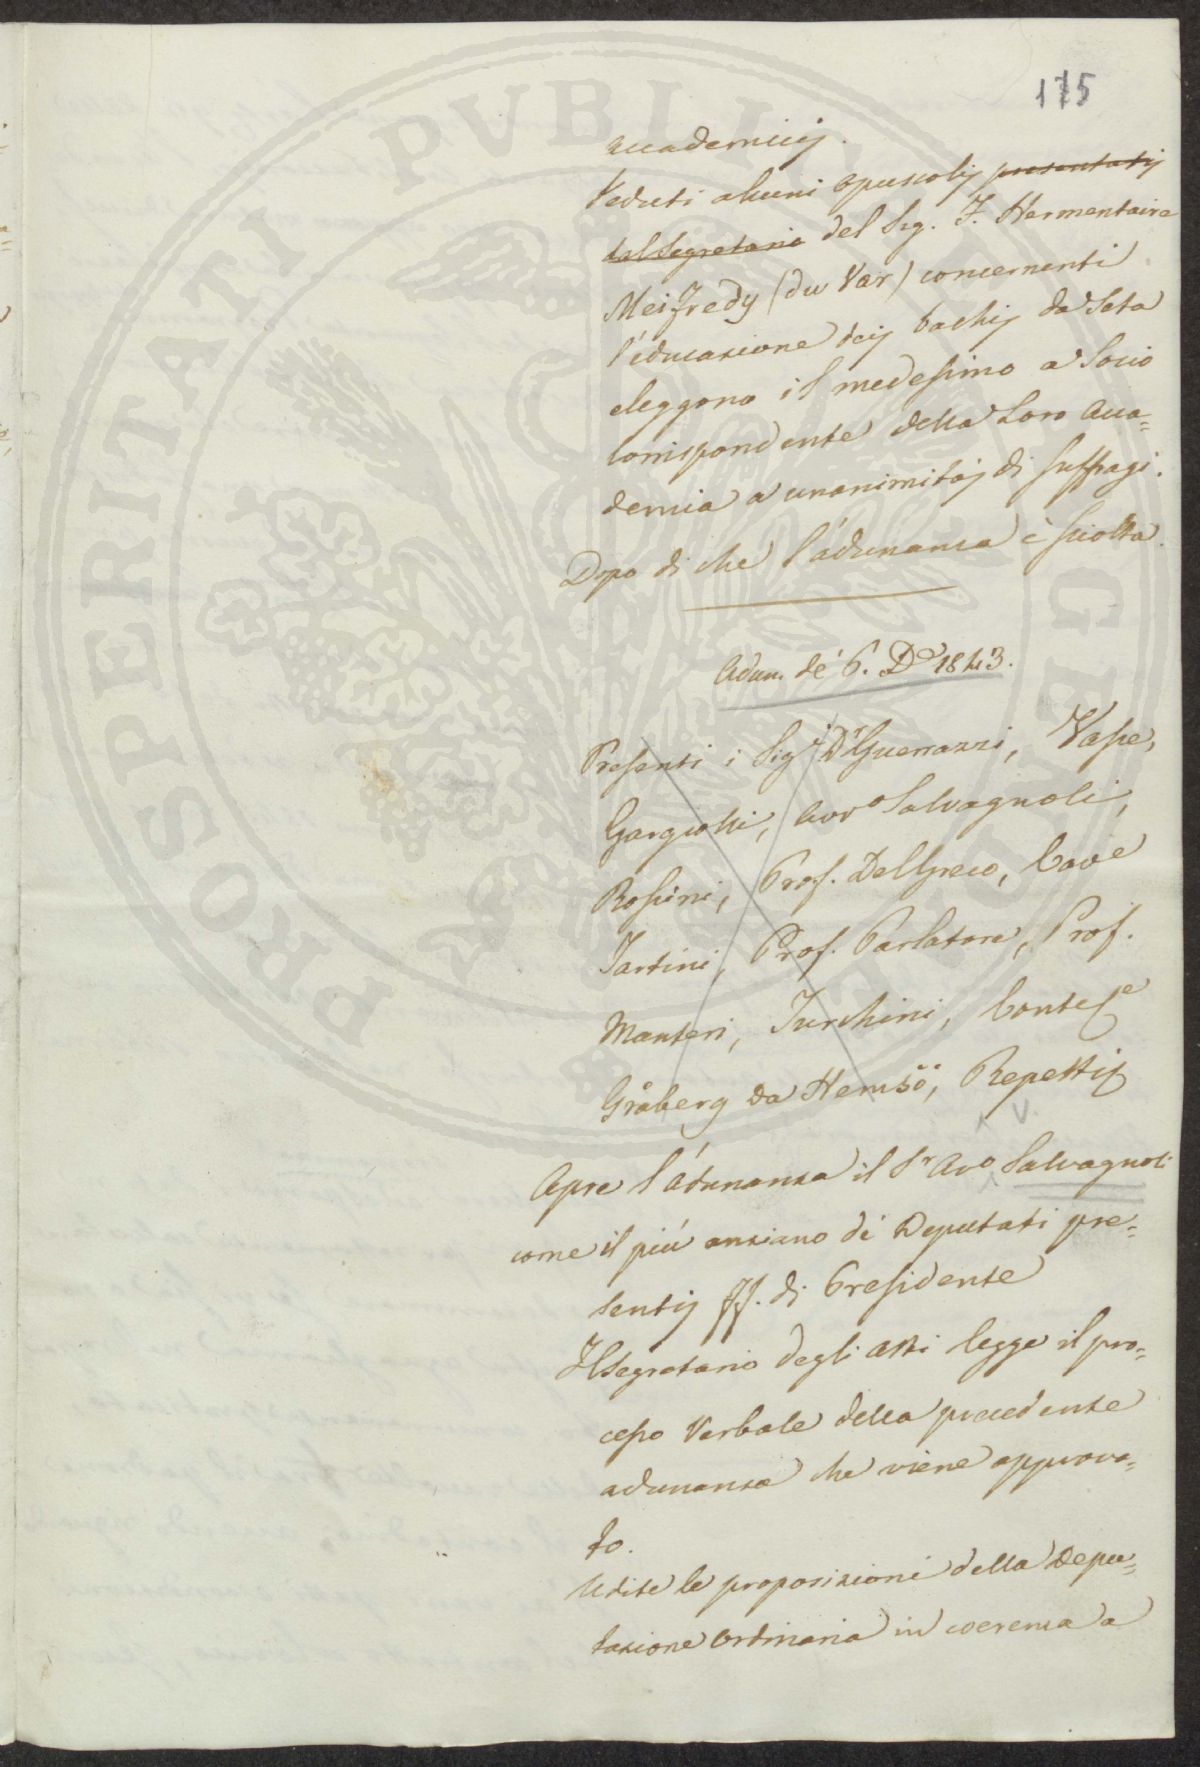 175
accademicij.
Veduti alcuni opuscolij presentatij
dal Segretario del Sig. F. Hermentaire
Meifredy (du Var) concernenti
l'educazione deij bachij da Seta
eleggono il medesimo a Socio
Corrispondente della Loro Acca=
demia a unanimitaj di suffragi.
Dopo di che l'adunanza è sciolta.
Adun. de' 6. D.e 1843.
Presenti i Sig.i D.r Guerrazzi,
Gargiolli, Avv.o Salvagnoli,
Rossini, Prof. Del Greco, Cav.e
Tartini, Prof. Parlatore, Prof.
Manteri, Turchini, Conte
Gråberg da Hemsö, Repetti
Apre l'adunanza il S.r Av.o Salvagnoli
come il più anziano de' Deputati pre=
sentij ff. di Presidente
Il Segretario degli Atti legge il pro=
cesso Verbale della precedente
adunanza che viene approva=
to.
Udite le proposizioni della Depu=
tazione Ordinaria in coerenza a
PROSPERITATI PVBLICAE AVGENDAE